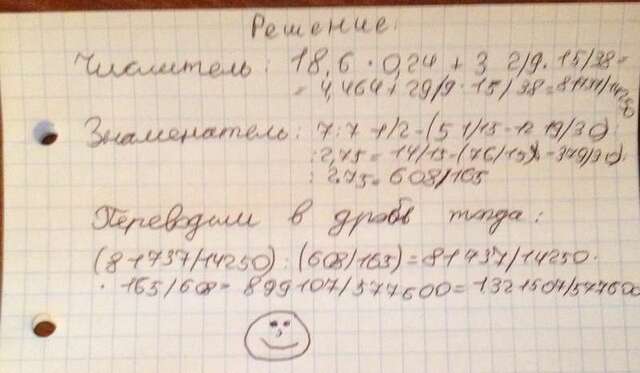 Решение:
Числитель: 18,6 · 0,24 + 3 2/9 · 15/38 =
= 4,464 + 29/9 · 15/38 = 81737/14250
Знаменатель: 7:7 1/2 - (5 1/15 - 12 19/30)
: 2,75 = 14/15 - (76/15 - 379/30)
: 2.75 = 608/165
Переводим в дробь тогда:
(81737/14250) : (608/165) = 81737/14250 ·
· 165/608 = 899107/577600 = 1 321507/577600